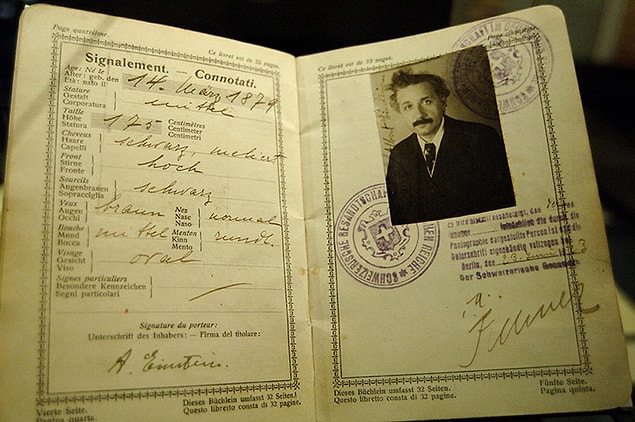 Page quatrième. Ce livret est de 32 pages.
Signalement. — Connotati.
Age: Né le
Alter: geb. den 14. März 1879
Età: nato il
Stature
Gestalt mittel
Corporatura
Taille Centimètres
Höhe 175 Centimeter
Statura Centimetri
Cheveux
Haare schwarz, meliert
Capelli
Front
Stirne hoch
Fronte
Sourcils
Augenbrauen schwarz
Sopracciglia
Yeux Nez
Augen braun Nase normal
Occhi Naso
Bouche Menton
Mund mittel Kinn rund.
Bocca Mento
Visage
Gesicht oval
Viso
Signes particuliers
Besondere Kennzeichen
Segni particolari
Signature du porteur:
Unterschrift des Inhabers: — Firma del titolare:
A. Einstein.
Vierte Seite. Dieses Büchlein umfasst 32 Seiten.
Pagina quarta. Questo libretto consta di 32 pagine.
Ce livret est de 32 pages.
SCHWEIZERISCHE GESANDTSCHAFT
DEUTSCHEN REICHE
Photographie dargestellte Person ist und die
Unterschrift eigenhändig vollzogen
Berlin, den
Der Schweizerische
i. A.
Dieses Büchlein umfasst 32 Seiten. Fünfte Seite.
Questo libretto consta di 32 pagine. Pagina quinta.